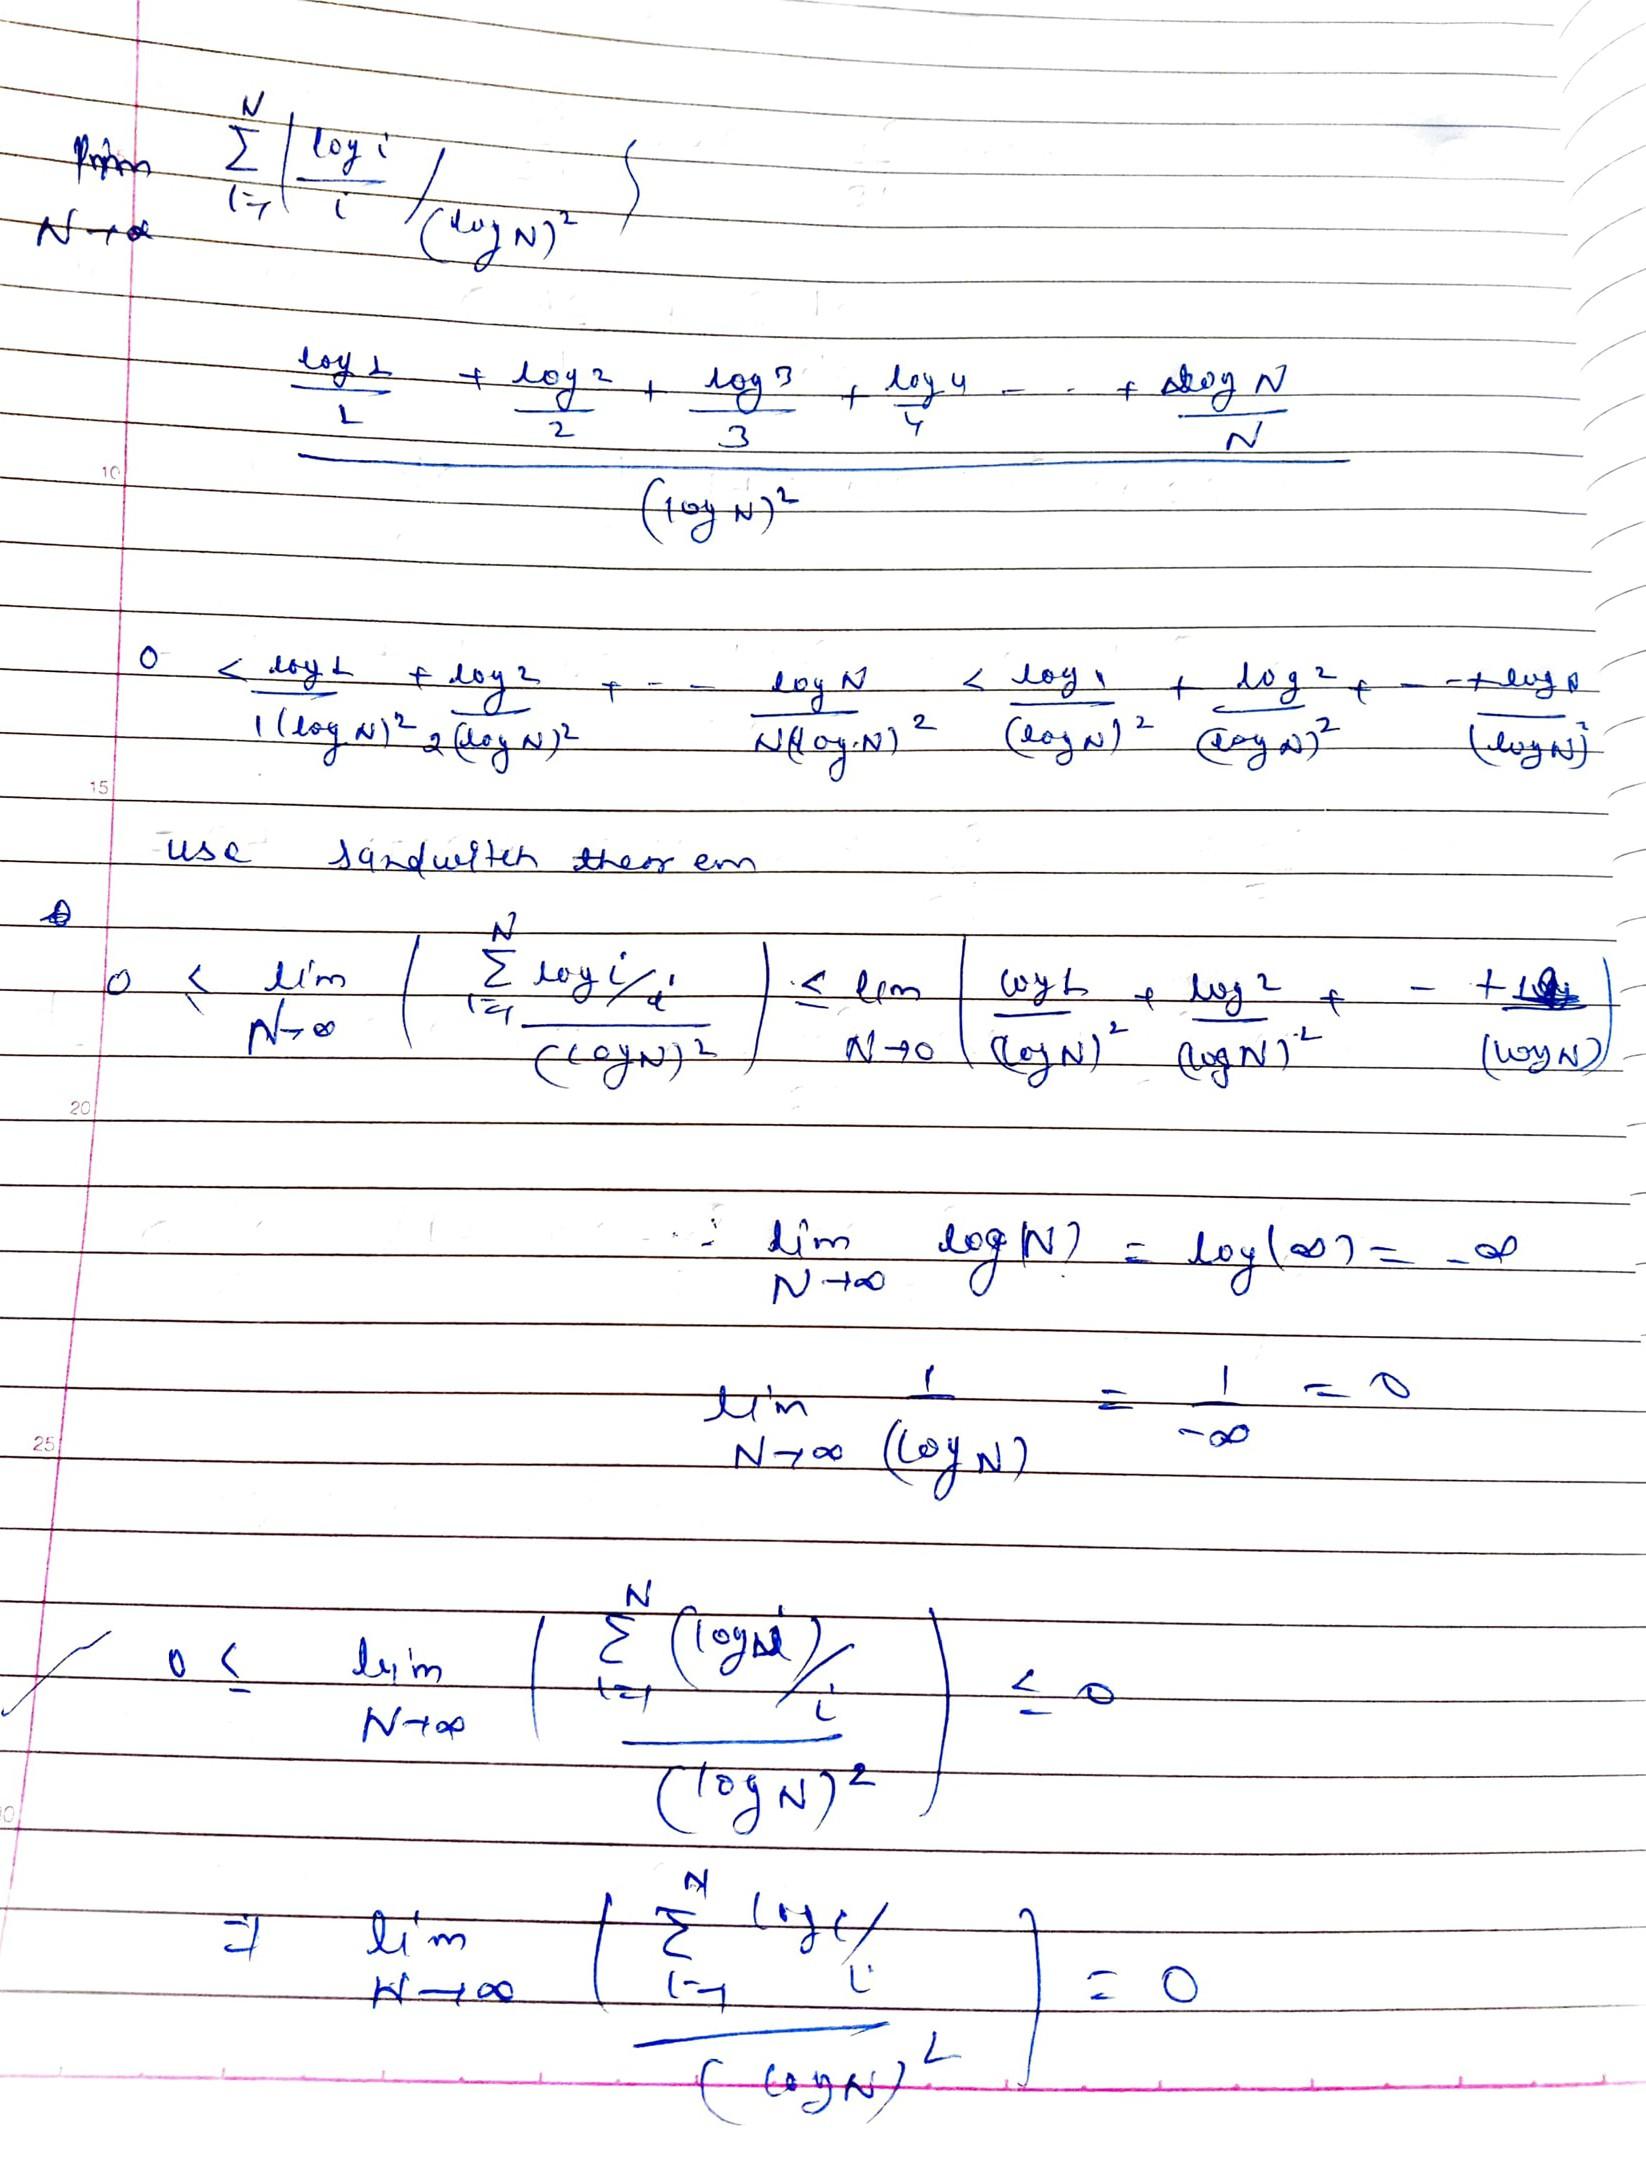 lim N→∞ Σ i=1 N ( log i / i / (log N)² )
log 1 / 1 + log 2 / 2 + log 3 / 3 + log 4 / 4 - - + log N / N
(log N)²
10
0 < log 1 / 1(log N)² + log 2 / 2(log N)² + - - log N / N(log N)² < log 1 / (log N)² + log 2 / (log N)² + - - + log N / (log N)²
15
use sandwitch theorem
0 < lim N→∞ ( Σ i=1 N log i / i / (log N)² ) ≤ lim N→0 ( log 1 / (log N)² + log 2 / (log N)² + - + / (log N) )
20
∵ lim N→∞ log(N) = log(∞) = -∞
lim N→∞ 1 / (log N) = 1 / -∞ = 0
25
0 ≤ lim N→∞ ( Σ i=1 N (log i) / i / (log N)² ) ≤ 0
⇒ lim N→∞ ( Σ i=1 N log i / i / (log N)² ) = 0